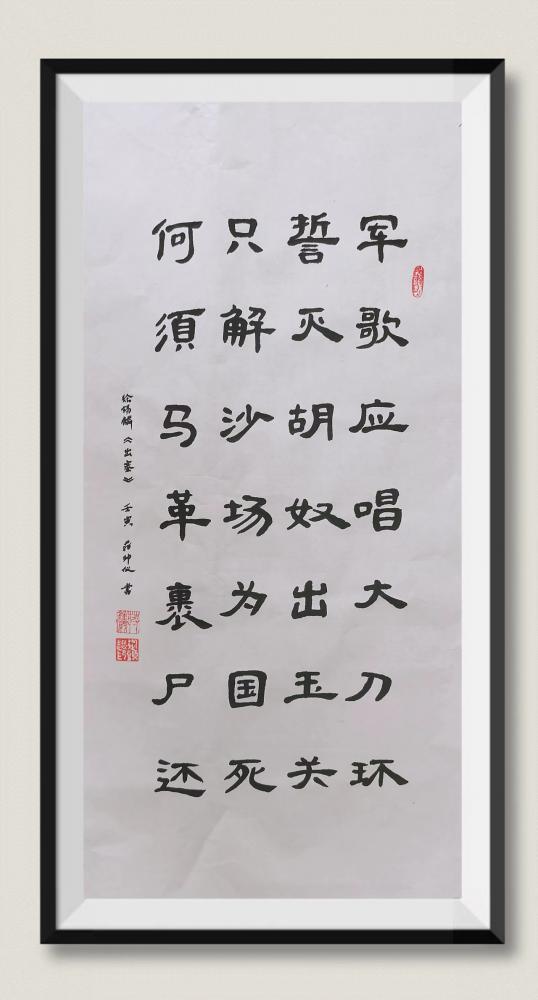 军歌应唱大刀环
誓灭胡奴出玉关
只解沙场为国死
何须马革裹尸还
《出塞》 壬寅 书